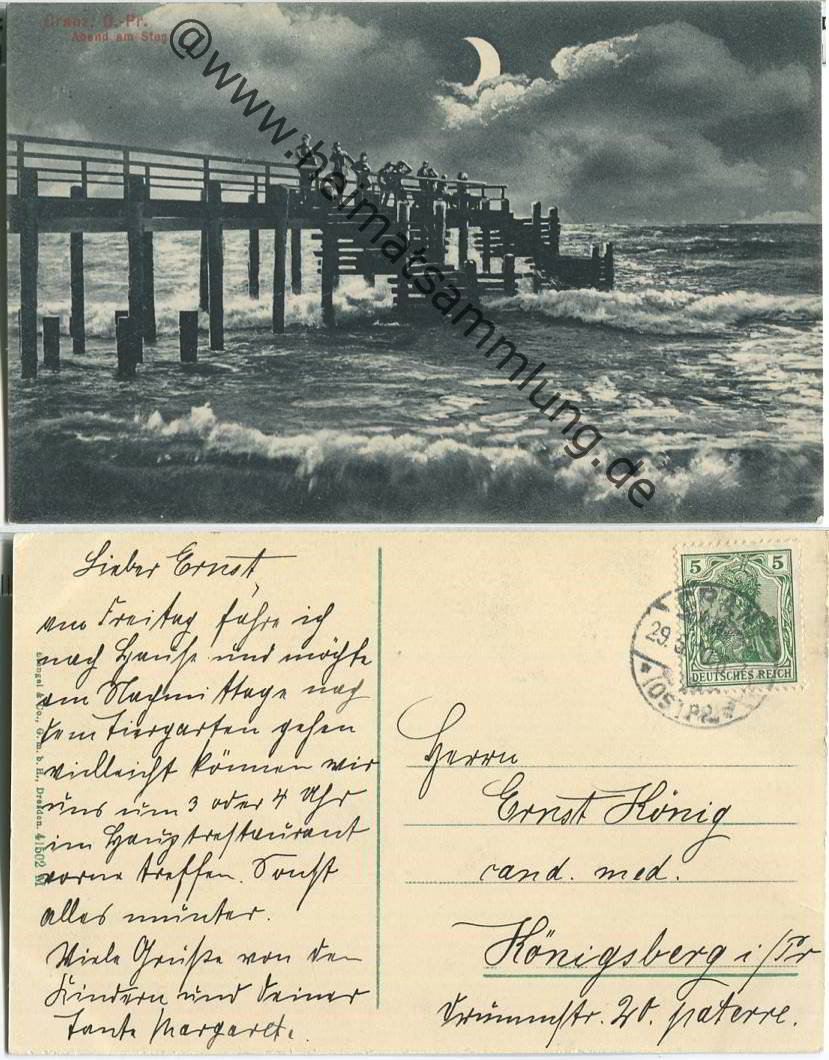 Cranz, O.-Pr.
Abend am Steg
@www.heimatsammlung.de
Lieber Ernst,
am Freitag fahre ich
nach Hause und möchte
am Nachmittage nach
dem Tiergarten gehen
vielleicht können wir
uns um 3 oder 4 Uhr
im Hauptrestaurant
vorne treffen. Sonst
alles munter.
Viele Grüße von den
Kindern und Deiner
Tante Margarete.
Stengel & Co., G. m. b. H., Dresden. 41502 M
5 5
DEUTSCHES REICH
CRANZ
29.
* (OSTPR.) *
Herrn
Ernst König
cand. med.
Königsberg i/Pr
Drummstr. 20. paterre.